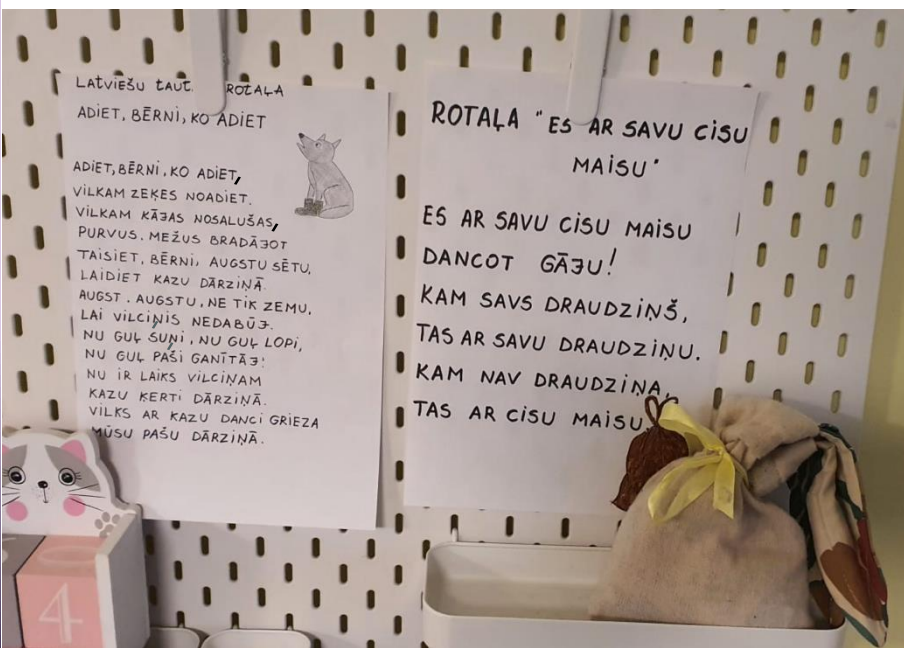 LATVIEŠU TAUT. ROTAĻA
ADIET, BĒRNI, KO ADIET
ADIET, BĒRNI, KO ADIET,
VILKAM ZEĶES NOADIET.
VILKAM KĀJAS NOSALUŠAS,
PURVUS. MEŽUS BRADĀJOT
TAISIET, BĒRNI, AUGSTU SĒTU,
LAIDIET KAZU DĀRZIŅĀ.
AUGST. AUGSTU, NE TIK ZEMU,
LAI VILCIŅIS NEDABŪJ.
NU GUĻ SUŅI, NU GUĻ LOPI,
NU GUĻ PAŠI GANĪTĀJ!
NU IR LAIKS VILCIŅAM
KAZU ĶERTI DĀRZIŅĀ.
VILKS AR KAZU DANCI GRIEZA
MŪSU PAŠU DĀRZIŅĀ.
ROTAĻA "ES AR SAVU CISU
MAISU"
ES AR SAVU CISU MAISU
DANCOT GĀJU!
KAM SAVS DRAUDZIŅŠ,
TAS AR SAVU DRAUDZIŅU.
KAM NAV DRAUDZIŅA,
TAS AR CISU MAISU.
4